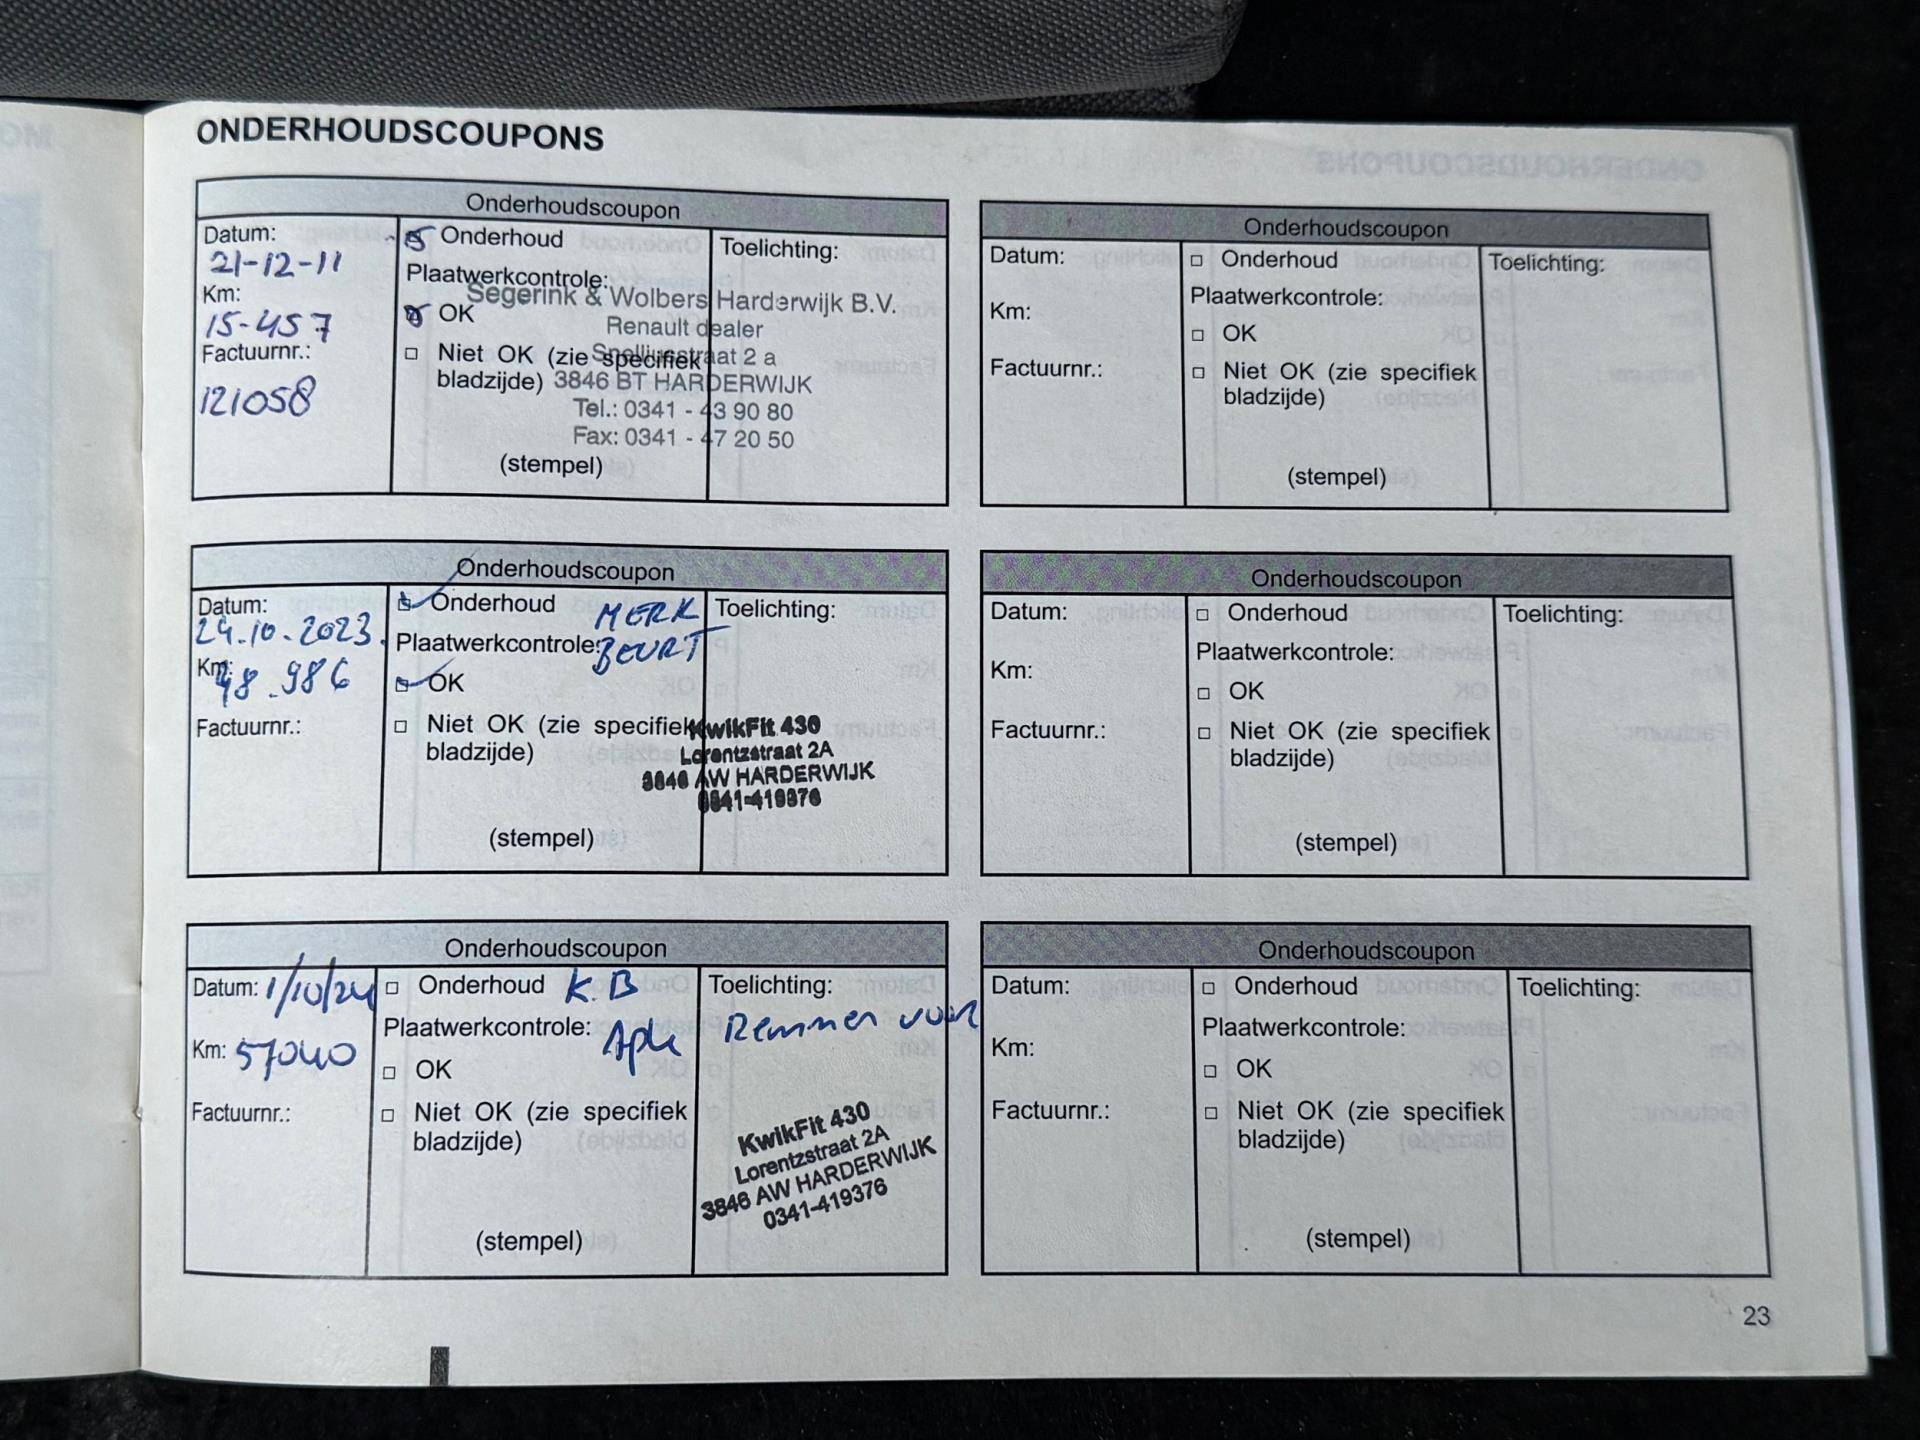 ONDERHOUDSCOUPONS
Onderhoudscoupon
Datum:
21-12-11
Km:
15-457
Factuurnr.:
121058
Onderhoud
Plaatwerkcontrole:
OK
Niet OK (zie specifiek
bladzijde)
(stempel)
Toelichting:
Segerink & Wolbers Harderwijk B.V.
Renault dealer
Snelliusstraat 2 a
3846 BT HARDERWIJK
Tel.: 0341 - 43 90 80
Fax: 0341 - 47 20 50
Onderhoudscoupon
Datum:
Km:
Factuurnr.:
Onderhoud
Plaatwerkcontrole:
OK
Niet OK (zie specifiek
bladzijde)
(stempel)
Toelichting:
Onderhoudscoupon
Datum:
24.10.2023.
Km:
48.986
Factuurnr.:
Onderhoud
MERK
Plaatwerkcontrole:
BEURT
OK
Niet OK (zie specifiek
bladzijde)
(stempel)
Toelichting:
KwikFit 430
Lorentzstraat 2A
3846 AW HARDERWIJK
0341-419376
Onderhoudscoupon
Datum:
Km:
Factuurnr.:
Onderhoud
Plaatwerkcontrole:
OK
Niet OK (zie specifiek
bladzijde)
(stempel)
Toelichting:
Onderhoudscoupon
Datum: 1/10/24
Km: 57040
Factuurnr.:
Onderhoud K.B
Plaatwerkcontrole: Apk
OK
Niet OK (zie specifiek
bladzijde)
(stempel)
Toelichting:
Remmen voor
KwikFit 430
Lorentzstraat 2A
3846 AW HARDERWIJK
0341-419376
Onderhoudscoupon
Datum:
Km:
Factuurnr.:
Onderhoud
Plaatwerkcontrole:
OK
Niet OK (zie specifiek
bladzijde)
(stempel)
Toelichting:
23